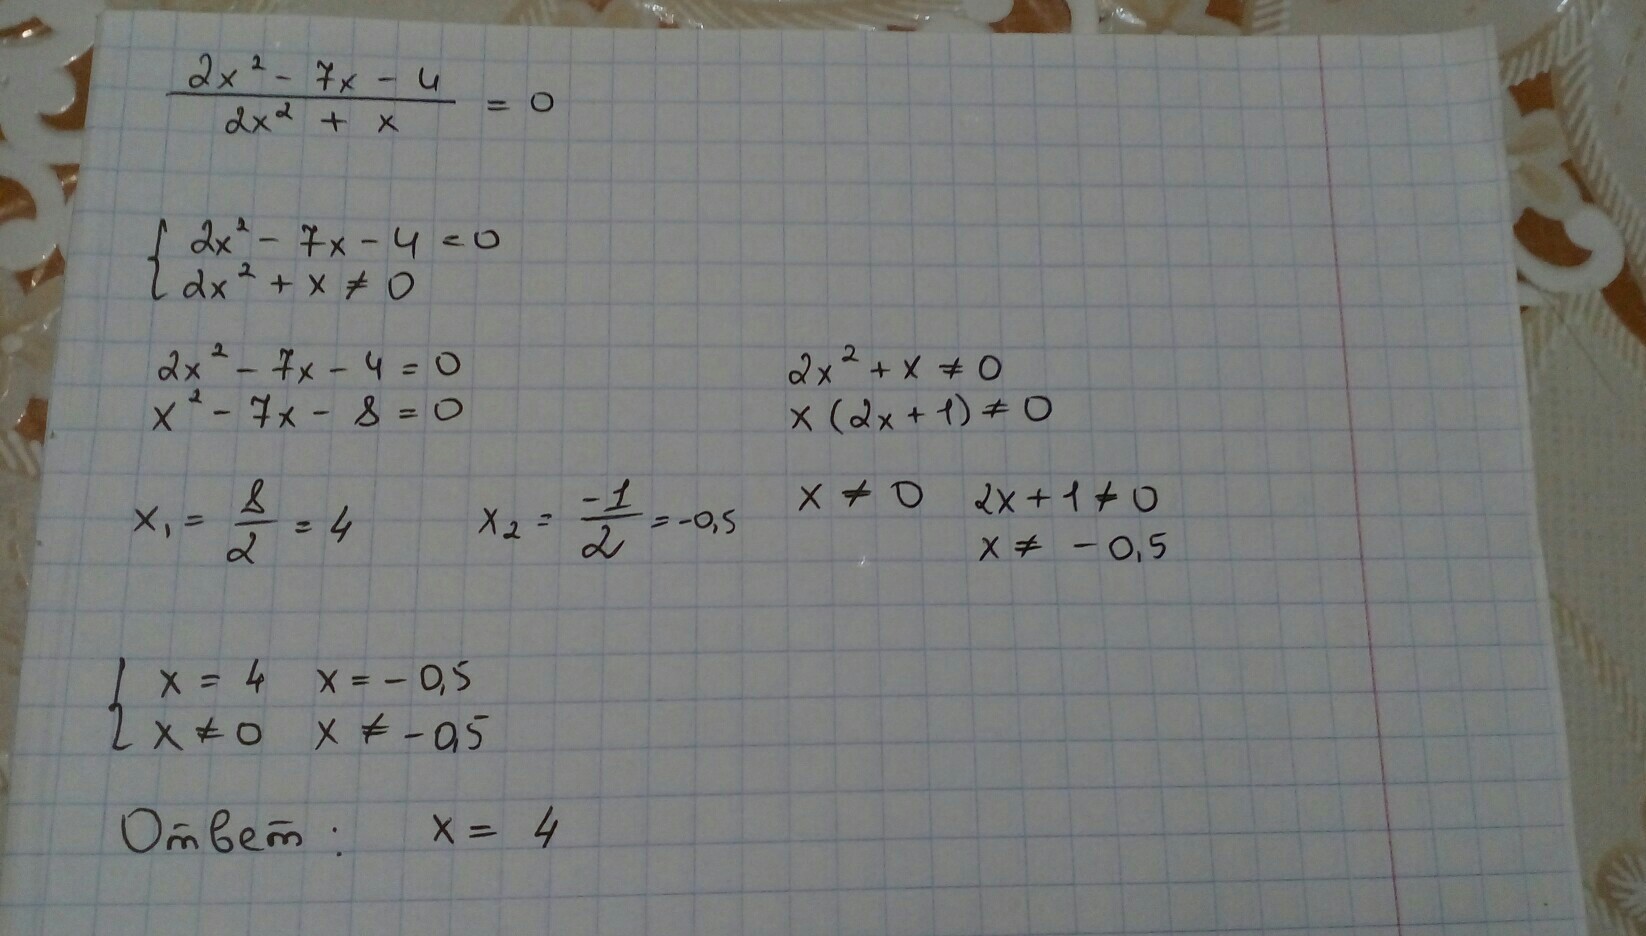 2x² - 7x - 4
2x² + x
= 0
{ 2x² - 7x - 4 = 0
2x² + x ≠ 0
2x² - 7x - 4 = 0
x² - 7x - 8 = 0
x₁ = 8/2 = 4 x₂ = -1/2 = -0,5
2x² + x ≠ 0
x (2x + 1) ≠ 0
x ≠ 0 2x + 1 ≠ 0
x ≠ -0,5
{ x = 4 x = -0,5
x ≠ 0 x ≠ -0,5
Ответ: x = 4